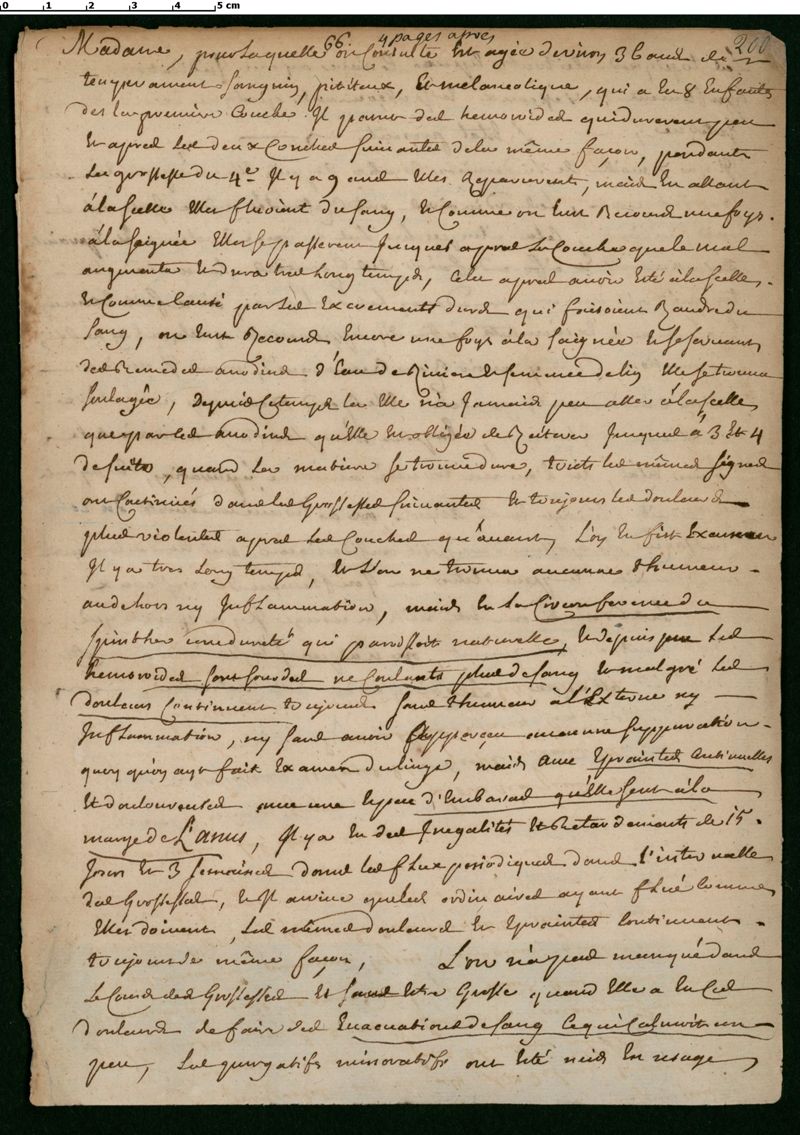 0 1 2 3 4 5 cm
66. 4 pages apres
200
Madame, pour Laquelle on Consulte Est agée denviron 36 ans de
temperament Sanguin, pititeux, Et melancolique, qui a Eu 8 Enfants
des la premiere Couche Il parut des hemoroides qui durerent peu
Et apres les deux Couches Suivantes de la même façon, pendant
la grossesse du 4e Il y a 9 ans Elles Reparurent, mais En allant
à la selle Elles fluoient du sang, Et Comme on Eut Recours une foys
à la saignée Elles se passerent Jusques apres la Couche que le mal
augmenta Et dura tres Long temps, Cela apres avoir Eté à la selle
Et Comme Causé par les Excrements durs qui faisoient Rendre du
sang, on Eut Recours Encore une foys à la saignée Et se servant
des Remedes anodins d'Eau de Riviere Et semence de lin Elle se trouva
soulagée, depuis Ce temps la Elle n'a Jamais peu aller à la selle
que par les anodins qu'Elle Est obligée de Reiterer Jusques à 3 Et 4
de suite, quand la matiere se trouve dure, touts les mêmes signes
ont Continués dans les Grossesses suivantes Et toujours les douleurs
plus violentes apres les Couches qu'avant, L'on En fist Examen
Il y a tres Long temps, Et L'on ne trouva aucune thumeur
au dehors ny Inflammation, mais En la Circonference du
sphincther une dureté qui paroissoit naturelle, Et depuis peu les
hemoroides sont sourdes ne Coulants plus de sang Et malgré les
douleurs Continuent toujours sans thumeur à l'Externe ny
Inflammation, ny sans avoir apperçeu aucune suppuration
quoy qu'on ayt fait Examen du linge, mais avec Epraintes Continuelles
Et douloureuses avec une Espece d'Embaras qu'Elle sent à la
marge de L'anus, Il y a Eu des Inegalités Et Retardements de 15
Jours Et 3 semaines dans les flux periodiques dans l'intervalle
des Grossesses, Et Il arrive que les ordinaires ayant flué Comme
Elles doivent, les mêmes douleurs Et Epraintes Continuent
toujours de même façon, L'on n'a pas manqué dans
Le Cours des Grossesses Et sans Etre Grosse quand Elle a Eu Ces
douleurs de faire des Evacuations de sang Ce qui Calmoit un
peu, Les purgatifs minoratifs ont Eté mis En usage